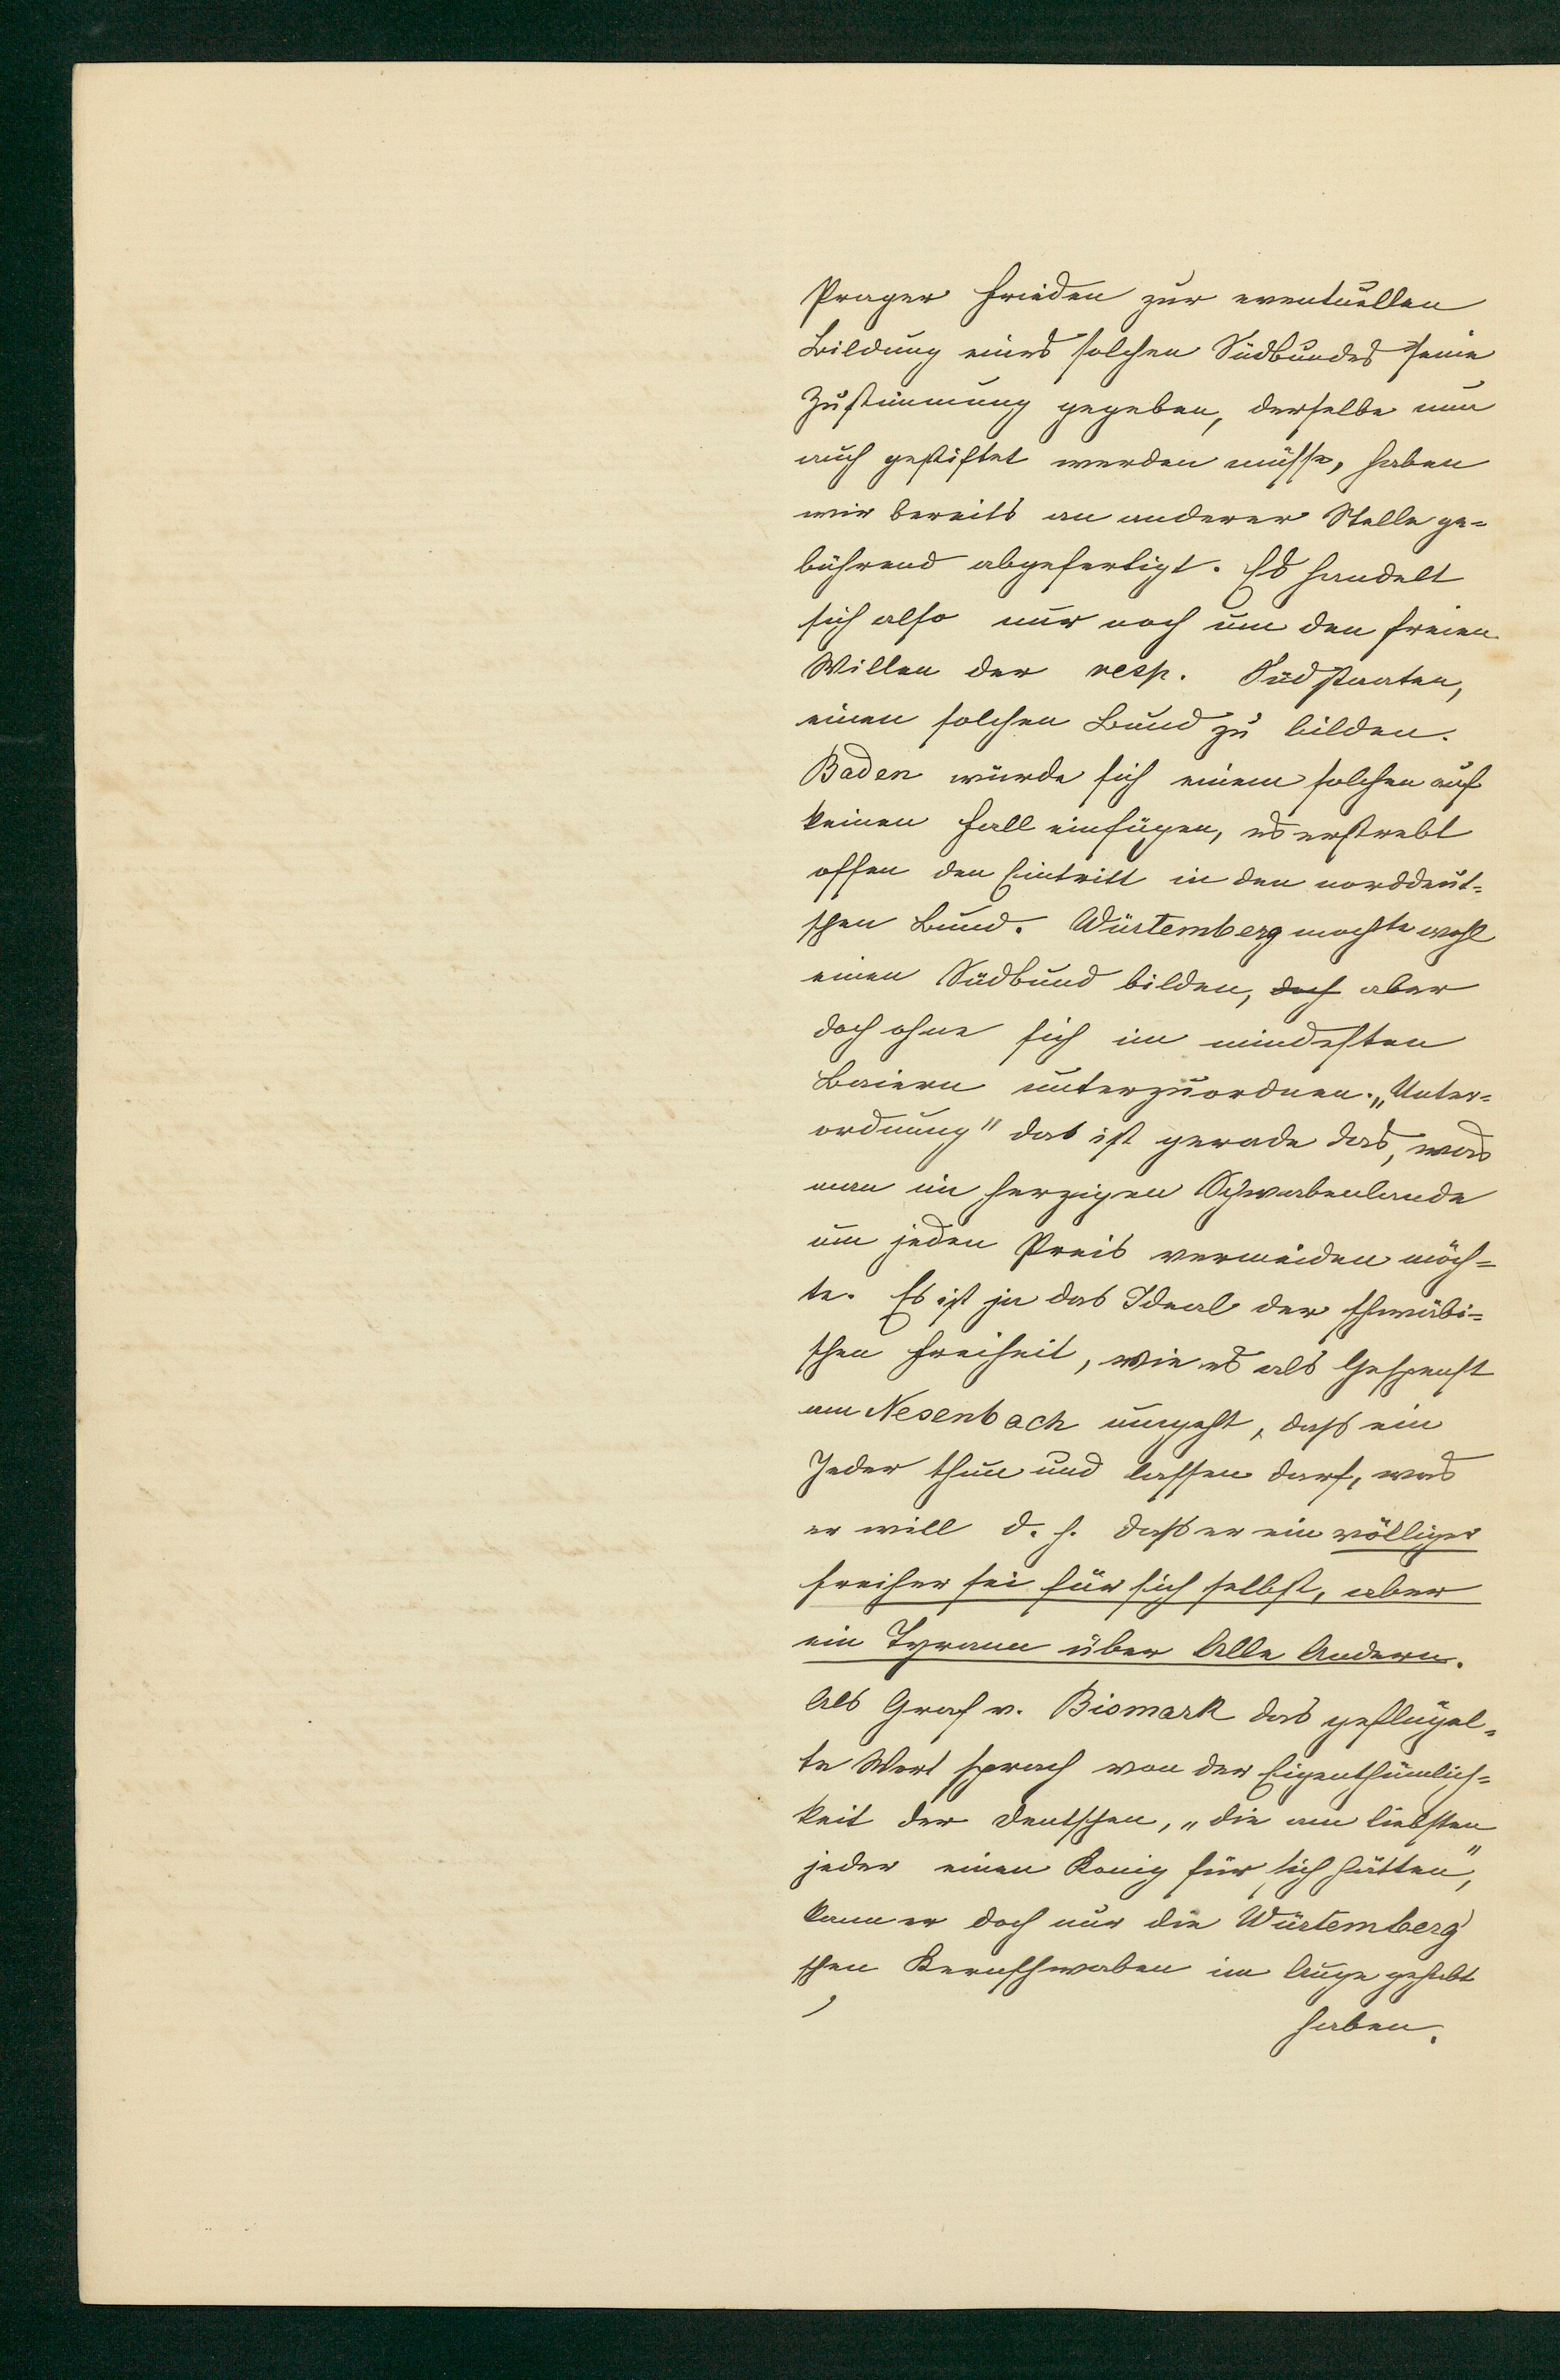 Prager Frieden zur eventuellen
Bildung eines solchen Südbundes seine
Zustimmung gegeben, derselbe nun
auch gestiftet werden müsse, haben
wir bereits an anderer Stelle ge-
bührend abgefertigt. Es handelt
sich also nur noch um den freien
Willen der resp. Südstaaten,
einen solchen Bund zu bilden.
Baden würde sich einem solchen auf
keinen Fall einfügen, es erstrebt
offen den Eintritt in den norddeut-
schen Bund. Würtemberg mochte wohl
einen Südbund bilden, doch aber
doch ohne sich im mindesten
Baiern unterzuordnen. „Unter-
ordnung" das ist gerade das, was
man im herzigen Schwabenlande
um jeden Preis vermeiden möch-
te. Es ist ja das Ideal der schwäbi-
schen Freiheit, wie es als Gespenst
am Nesenbach umgeht, daß ein
Jeder thun und lassen darf, was
er will d. h. daß er ein völliger
Freiher sei für sich selbst, aber
ein Tyrann über Alle Andern.
Als Graf v. Bismark das geflügel-
te Wort sprach von der Eigenthümlich-
keit der Deutschen, „die am liebsten
jeder einen König für sich hätten",
kann er doch nur die Würtemberg'
schen Kernschwaben im Auge gehabt
haben.